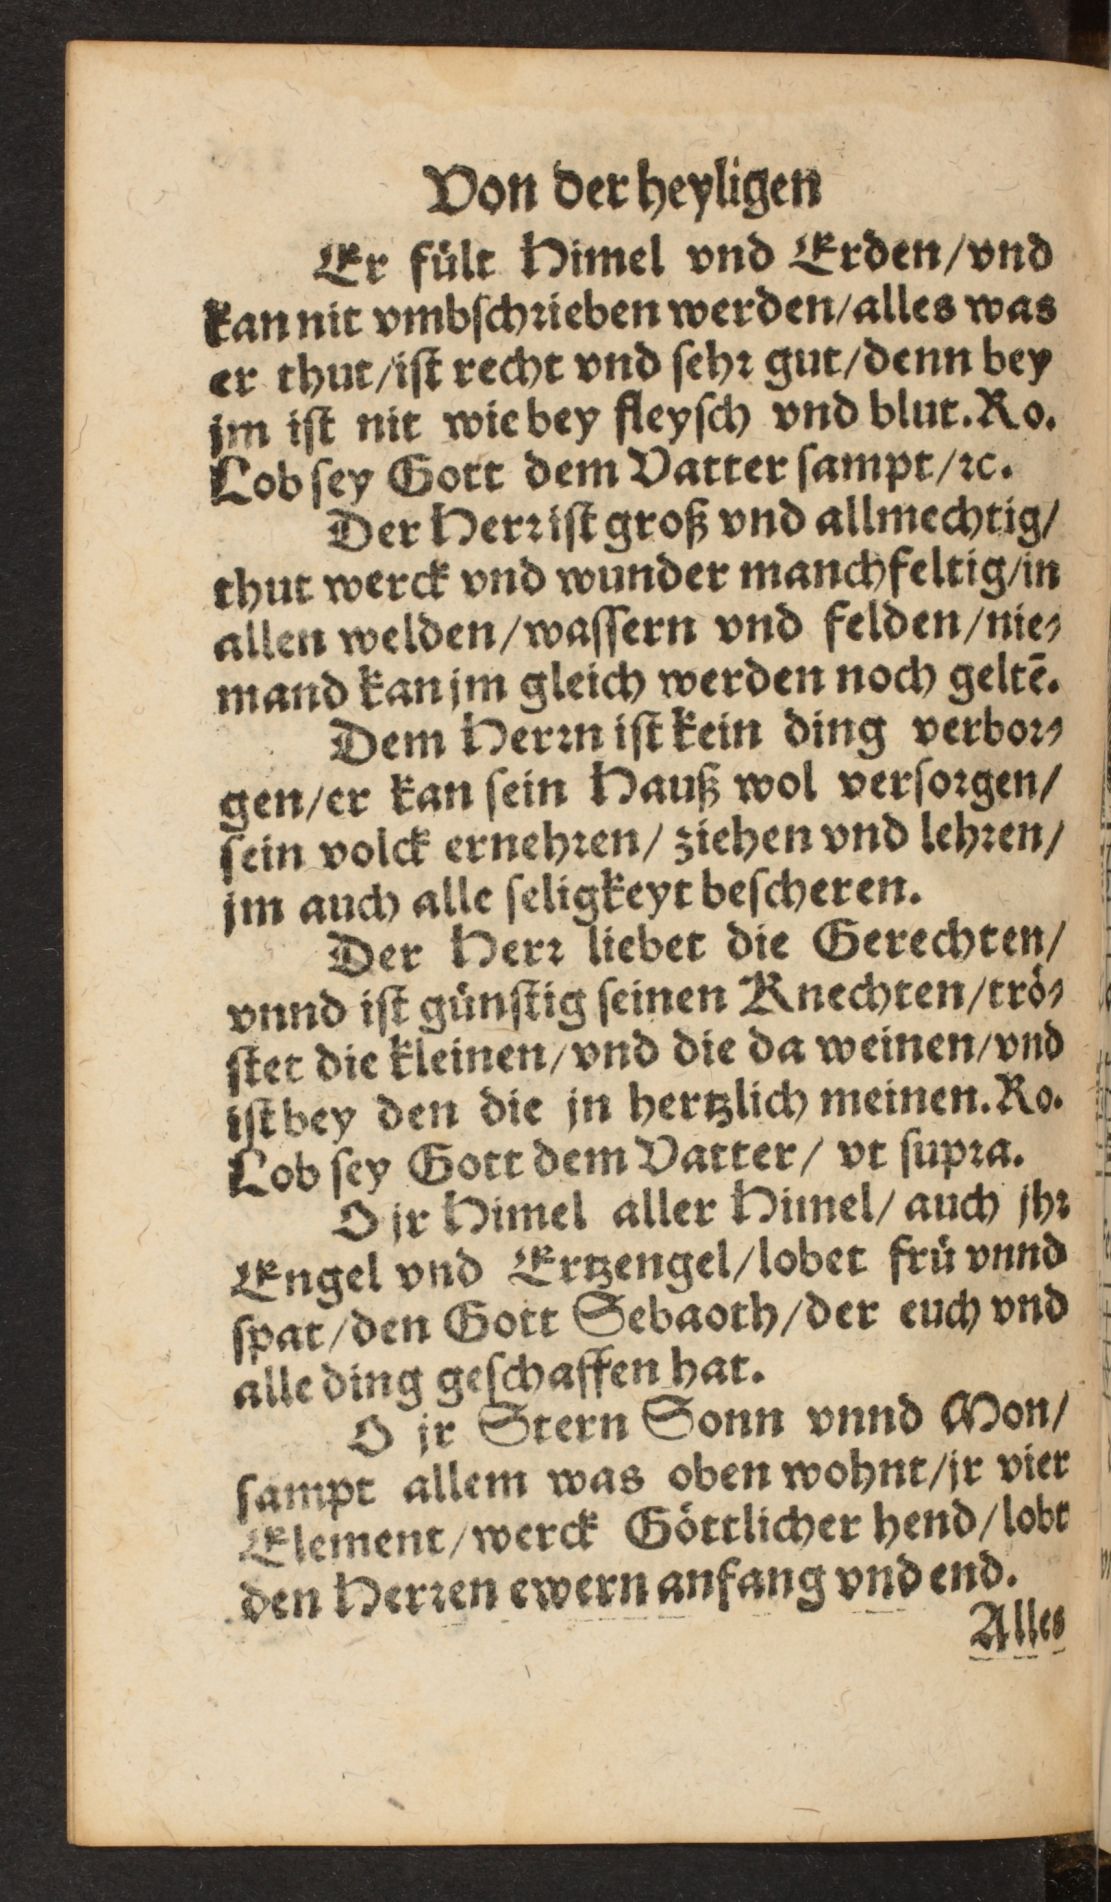 Von der heyligen
Er fült Himel vnd Erden/vnd
kan nit vmbschrieben werden/alles was
er thut/ist recht vnd sehr gut/denn bey
jm ist nit wie bey fleysch vnd blut. Ro.
Lob sey Gott dem Vatter sampt/ꝛc.
Der Herr ist groß vnd allmechtig/
thut werck vnd wunder manchfeltig/in
allen welden/wassern vnd felden/nie⸗
mand kan jm gleich werden noch geltē.
Dem Herrn ist kein ding verbor⸗
gen/er kan sein Hauß wol versorgen/
sein volck ernehren/ ziehen vnd lehren/
jm auch alle seligkeyt bescheren.
Der Herr liebet die Gerechten/
vnnd ist günstig seinen Knechten/trö⸗
stet die kleinen/vnd die da weinen/vnd
ist bey den die jn hertzlich meinen. Ro.
Lob sey Gott dem Vatter/ vt supra.
O jr Himel aller Himel/ auch jhr
Engel vnd Ertzengel/lobet frü vnnd
spat/den Gott Sebaoth/der euch vnd
alle ding geschaffen hat.
O jr Stern Sonn vnnd Mon/
sampt allem was oben wohnt/jr vier
Element/werck Göttlicher hend/lobt
den Herren ewern anfang vnd end.
Alles